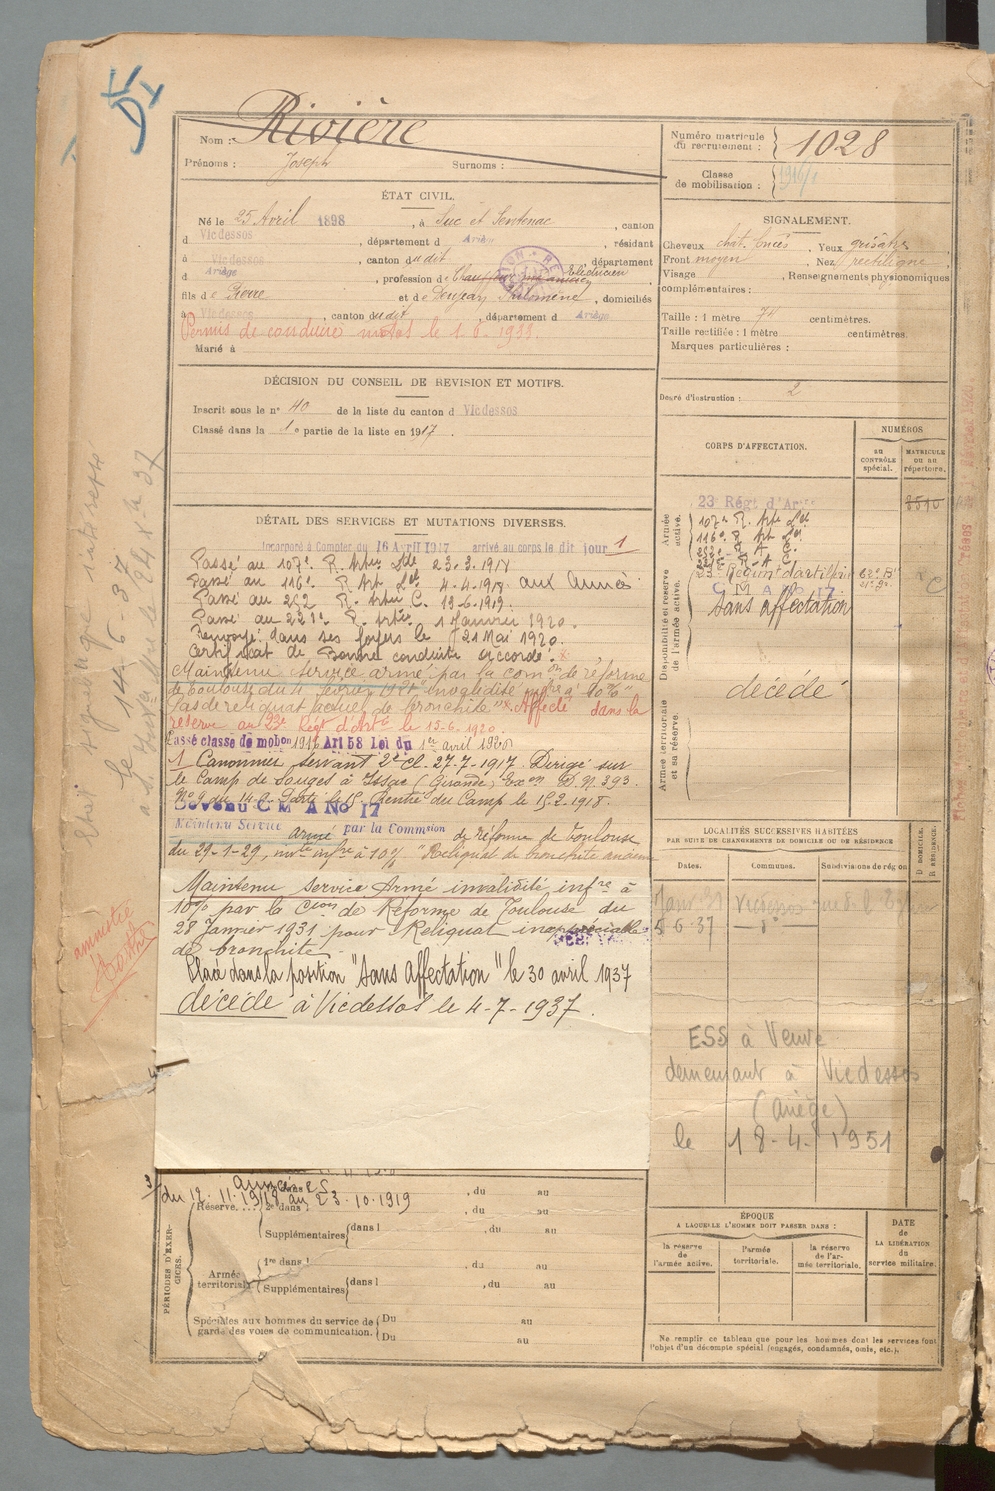 Nom : Rivière
Prénoms : Joseph Surnoms :
Numéro matricule du recrutement : 1028
Classe de mobilisation : 1916/1
ÉTAT CIVIL.
Né le 25 Avril 1898, à Suc et Sentenac, canton
d Vicdessos, département d Ariège, résidant
à Vicdessos, canton dudit, département
d Ariège, profession de Electricien
fils de Pierre et de Philomène, domiciliés
à Vicdessos, canton dudit, département d Ariège
Permis de conduire motos le 1.6.1933.
Marié à
SIGNALEMENT.
Cheveux chat. foncés Yeux grisâtre
Front moyen Nez rectiligne
Visage , Renseignements physionomiques
complémentaires :
Taille : 1 mètre 74 centimètres.
Taille rectifiée : 1 mètre centimètres.
Marques particulières :
Degré d'instruction : 2
DÉCISION DU CONSEIL DE REVISION ET MOTIFS.
Inscrit sous le n° 40 de la liste du canton d Vicdessos
Classé dans la 1e partie de la liste en 1917.
CORPS D'AFFECTATION.
NUMÉROS
au CONTRÔLE spécial.
MATRICULE ou au répertoire.
Armée active.
23e Régt d'Art
107e R. Art Lde
116e R. Art Lde
252 R. A. C.
221e R. A. C.
Disponibilité et réserve de l'armée active.
23e Régiment d'artillerie
C M A No 17.
Sans affectation
décédé
Armée territoriale et sa réserve.
DÉTAIL DES SERVICES ET MUTATIONS DIVERSES.
Incorporé à Compter du 16 Avril 1917 arrivé au corps le dit jour 1
Passé au 107e R. Artie Lde 23.3.1918
Passé au 116e R. Art Lde 4-4-1918. aux Armées
Passé au 252 R. Artie C. 19-6-1919.
Passé au 221e R. Artie 1 Janvier 1920.
Renvoyé dans ses foyers le 21 Mai 1920.
Certificat de Bonne conduite accordé.
Maintenu service armé par la comon de réforme
de Toulouse du 4 février 1921 "invalidité infre à 10%"
"Pas de reliquat actuel de bronchite" Affecté dans la
réserve au 23e Régt d'Artie le 13-6.1920.
Passé classe de mobon 1916 Art 58 Loi du 1er avril 1920
1 Canonnier servant 2e cl. 27-7-1917. Dirigé sur
le Camp de Souges à Issac (Gironde) D. N. 393
Rentré du Camp le 15-2-1918.
Devenu C M A No 17
Maintenu Service armé par la Commsion de réforme de Toulouse
du 29-1-29, invté infre à 10% "Reliquat de bronchite ancienne
Maintenu Service Armé invalidité infre à
10% par la Cion de Réforme de Toulouse du
28 Janvier 1931 pour Reliquat inappréciable
de bronchite.
Placé dans la position "Sans Affectation" le 30 avril 1937
décédé à Vicdessos le 4-7-1937.
amnistié
LOCALITÉS SUCCESSIVES HABITÉES
PAR SUITE DE CHANGEMENTS DE DOMICILE OU DE RÉSIDENCE
Dates. Communes. Subdivisions de région
D DOMICILE. R RÉSIDENCE.
Vicdessos
6-37 — do —
ESS à Veuve
demeurant à Vicdessos
(Ariège)
le 18-4-1951
PÉRIODES D'EXERCICES.
du 12.11.1918 au 23.10.1919
Réserve.... 2e dans , du au
Supplémentaires dans l , du au
Armée territoriale 1re dans l , du au
Supplémentaires dans l , du au
Spéciales aux hommes du service de garde des voies de communication. Du au
Du au
ÉPOQUE
A LAQUELLE L'HOMME DOIT PASSER DANS :
la réserve de l'armée active.
l'armée territoriale.
la réserve de l'armée territoriale.
DATE de LA LIBÉRATION du service militaire.
Ne remplir ce tableau que pour les hommes dont les services font
l'objet d'un décompte spécial (engagés, condamnés, omis, etc.).